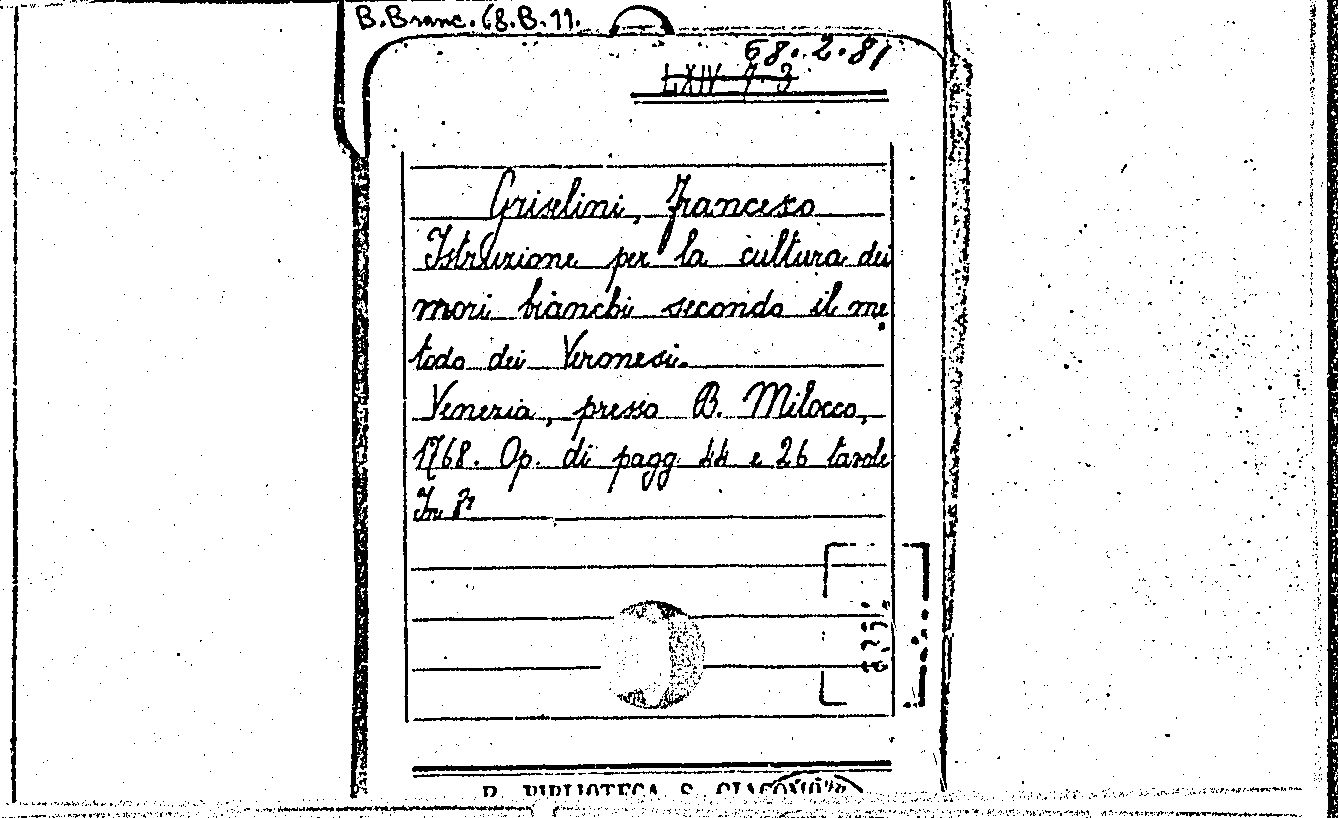 B. Branc. 68. B. 11.
68. 2. 81
LXIV 7 3
Griselini, Francesco
Istruzione per la cultura dei
mori bianchi secondo il me
todo dei Veronesi.
Venezia, presso B. Milocco,
1768. Op. di pagg. 44 e 26 tavole
In 8º
R. BIBLIOTECA S. GIACOMO